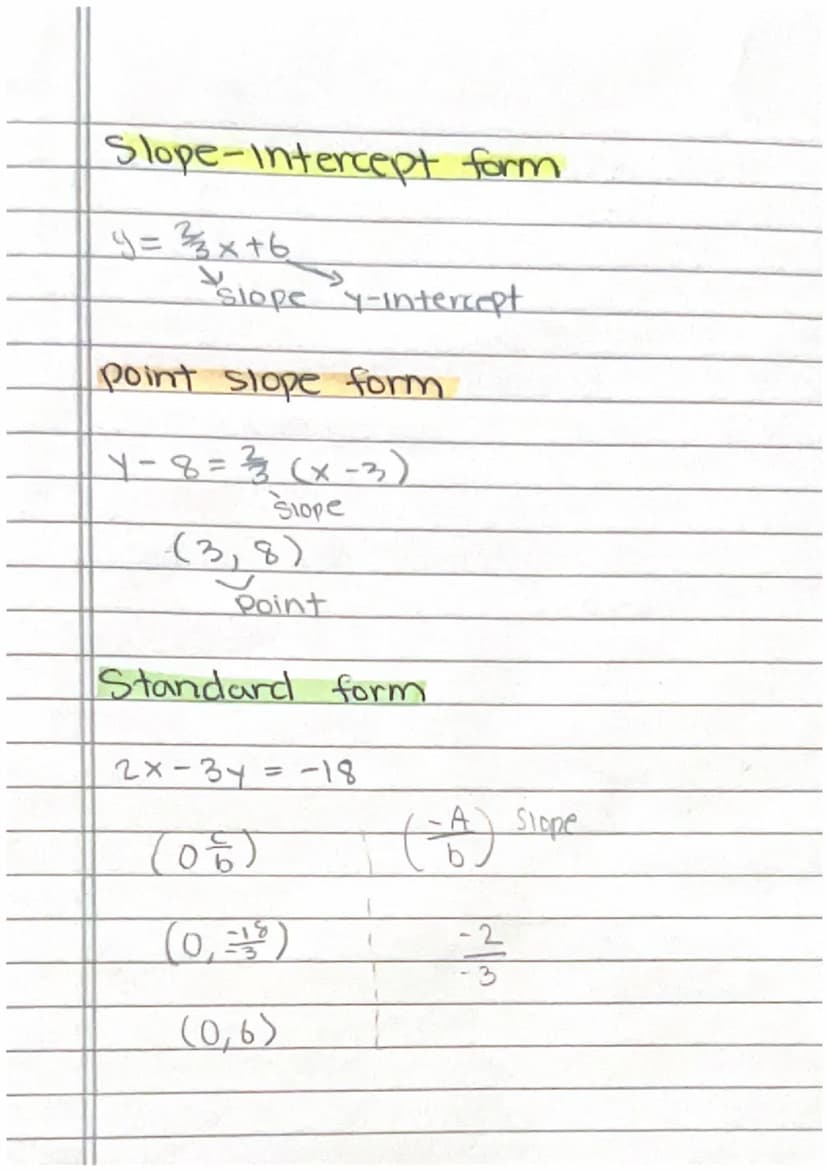 Slope-intercept form
y = 2/3 x + 6
slope y-intercept
point slope form
y - 8 = 2/3 (x - 3)
slope
(3, 8)
point
Standard form
2x - 3y = -18
(0 c/b) (-A/b) slope
(0, -18/-3) -2/-3
(0,6)